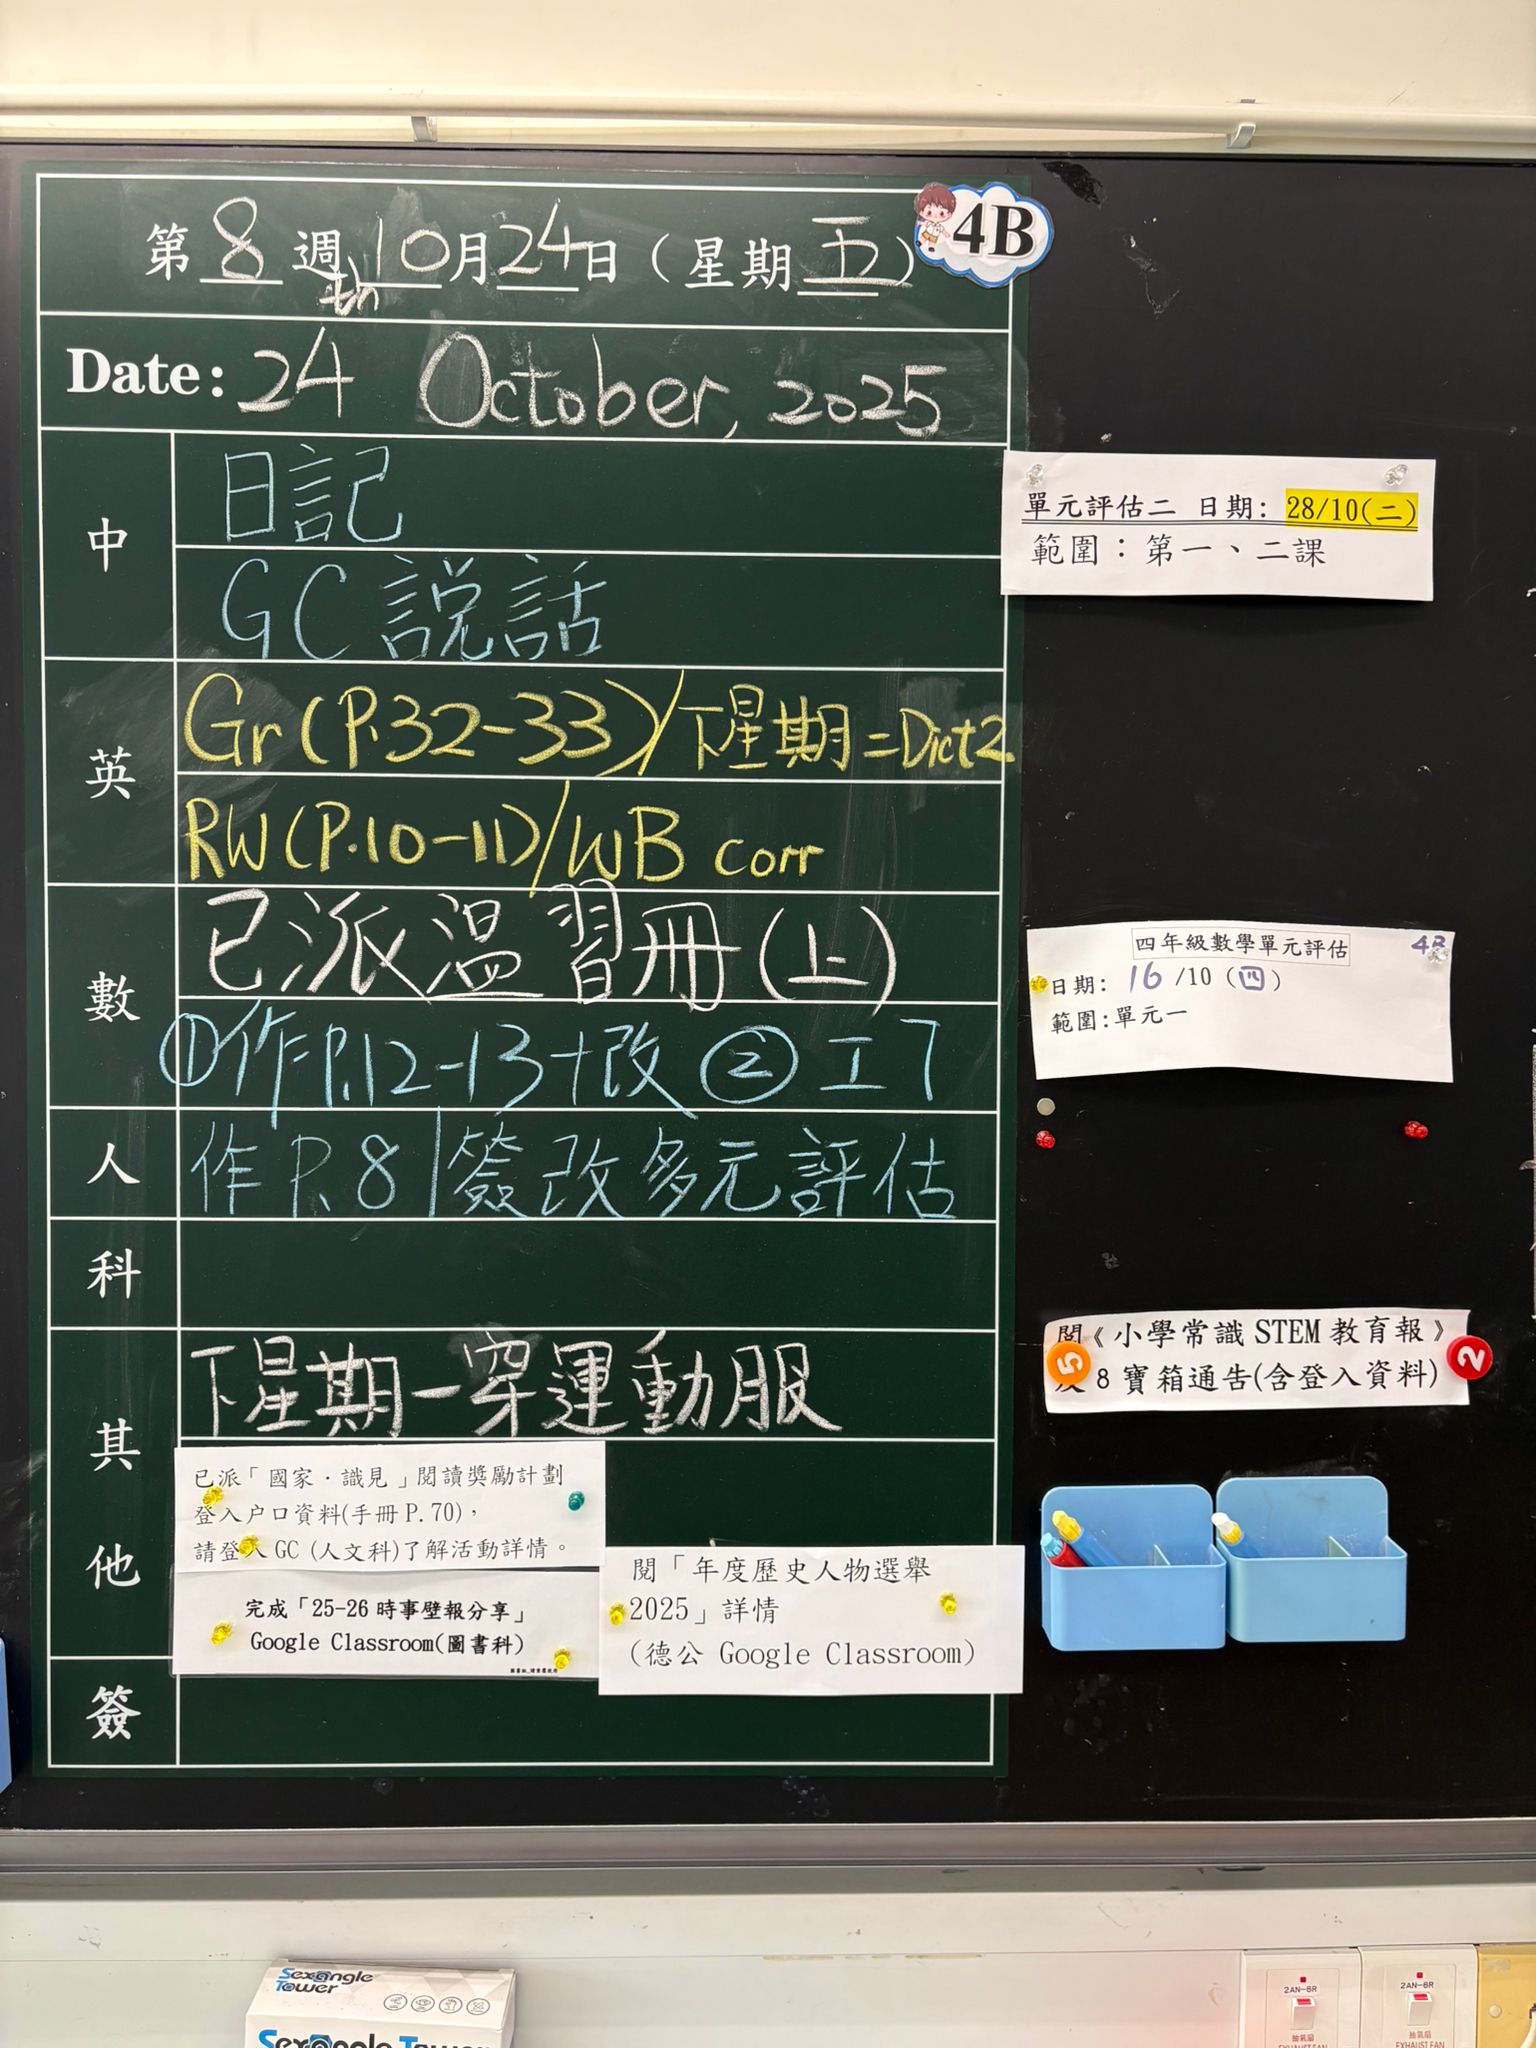 第 8 週 10 月 24 日（星期 五）
4B
th
Date: 24 October, 2025
中
日記
GC 說話
英
Gr (P.32-33)/下星期二Dict2
RW (P.10-11)/WB corr
數
已派溫習冊(上)
①作P.12-13+改 ② 工7
人
作P.8/簽改多元評估
科
其他
下星期一穿運動服
已派「國家．識見」閱讀獎勵計劃
登入户口資料(手冊 P.70)，
請登入 GC (人文科)了解活動詳情。
完成「25-26 時事壁報分享」
Google Classroom(圖書科)
閱「年度歷史人物選舉
2025」詳情
(德公 Google Classroom)
簽
單元評估二 日期: 28/10(二)
範圍：第一、二課
四年級數學單元評估 4B
日期: 16 /10 (四)
範圍:單元一
閱《小學常識 STEM 教育報》
及 8 寶箱通告(含登入資料)
5
2
Sexangle
Tower
Sexangle Tower
2AN-6R
抽氣扇
EXHAUST FAN
2AN-6R
抽氣扇
EXHAUST FAN